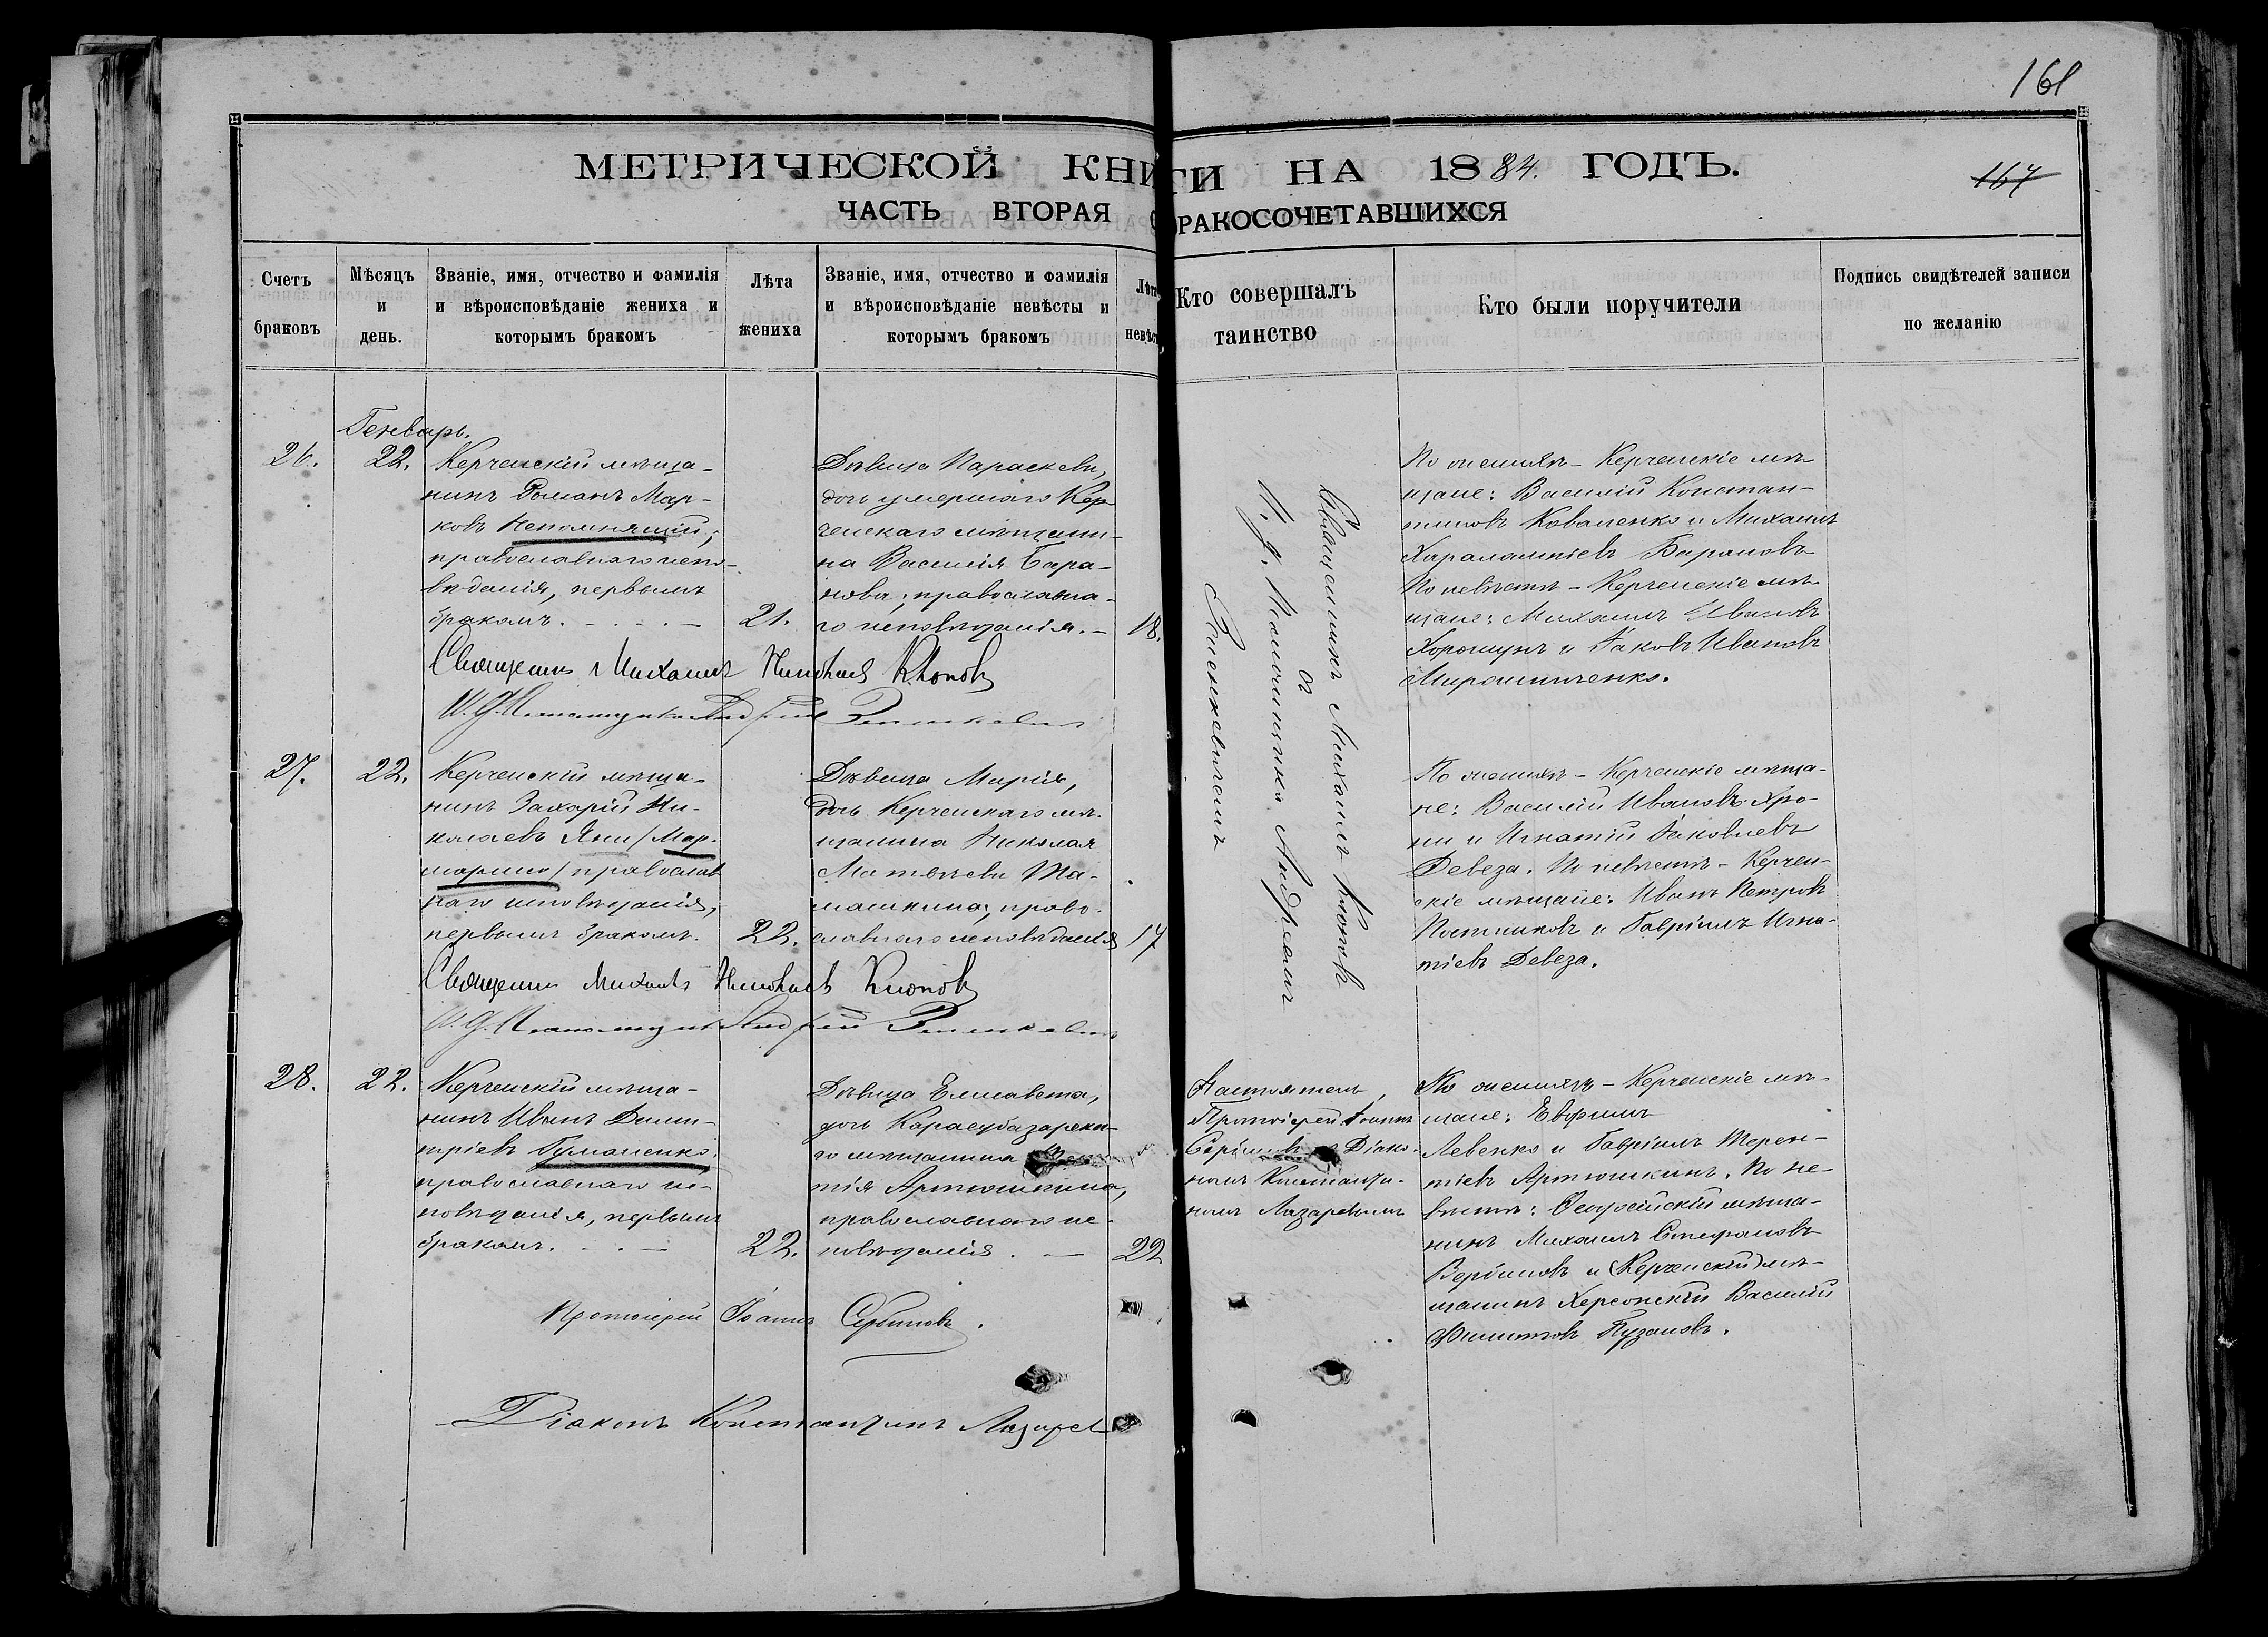 161
МЕТРИЧЕСКОЙ КНИГИ НА 1884. ГОДЪ.
167
ЧАСТЬ ВТОРАЯ О БРАКОСОЧЕТАВШИХСЯ
Счетъ
браковъ
Мѣсяцъ
и
день.
Званіе, имя, отчество и фамилія
и вѣроисповѣданіе жениха и
которымъ бракомъ
Лѣта
жениха
Званіе, имя, отчество и фамилія
и вѣроисповѣданіе невѣсты и
которымъ бракомъ
Лѣта
невѣс
Кто совершалъ
таинство
Кто были поручители
Подпись свидѣтелей записи
по желанію
Генварь.
26.
22.
Керченскій мѣща-
нинъ Романъ Мар-
ковъ Непомнящій,
православнаго испо-
вѣданія, первымъ
бракомъ.
21.
Дѣвица Параскева,
дочь умершаго Кер
ченскаго мѣщани-
на Василія Бара-
нова, православна-
го исповѣданія.
18.
Священникъ Михаилъ Клоповъ
И. д. Псаломщика Андреемъ
Зенкевичемъ
По женихѣ - Керченскіе мѣ
щане: Василій Констан-
тиновъ Коваленко и Михаилъ
Харалампіевъ Барановъ
По невѣстѣ - Керченскіе мѣ
щане: Михаилъ Ивановъ
Хорошунъ и Яковъ Ивановъ
Мирошниченко.
Священникъ Михаилъ Николаев Клоповъ
И. д. Псаломщика Андрей Зенкевич
27.
22.
Керченскій мѣща-
нинъ Захарій Ни-
колаевъ Яни /Мар-
марино/ православ
наго исповѣданія,
первымъ бракомъ.
22.
Дѣвица Марія,
дочь Керченскаго мѣ-
щанина Николая
Матвѣева
славнаго исповѣданія
17
По женихѣ - Керченскіе мѣща-
не: Василій Ивановъ Хро-
ни и Игнатій Яковлевъ
Девеза. По невѣстѣ - Керчен-
скіе мѣщане: Иванъ Петровъ
Постниковъ и Гавріилъ Игна-
тіевъ Девеза.
Священникъ Михаилъ Николаев Клоповъ
И. д. Псаломщика Андрей Зенкевич
28.
22.
Керченскій мѣща-
нинъ Иванъ Дими-
тріевъ Гуманенко,
православнаго ис-
повѣданія, первымъ
бракомъ.
22.
Дѣвица Елисавета,
дочь Карасубазарска-
го мѣщанина
тія Артюшкина,
православнаго ис-
повѣданія.
22
Настоятель
Протоіерей Іоаннъ
Сербиновъ Діако-
номъ Константи-
номъ Лазаревымъ
По женихѣ - Керченскіе мѣ-
щане: Евфимъ
Левенко и Гавріилъ Терен-
тіевъ Артюшкинъ. По не-
вѣстѣ: Ѳеодосійскій мѣща-
нинъ Михаилъ Стефановъ
Вербиновъ и (Керченскій) мѣ-
щанинъ Херсонскій Василій
Филиповъ Пузановъ.
Протоіерей Іоаннъ Сербиновъ.
Діаконъ Константинъ Лазарев